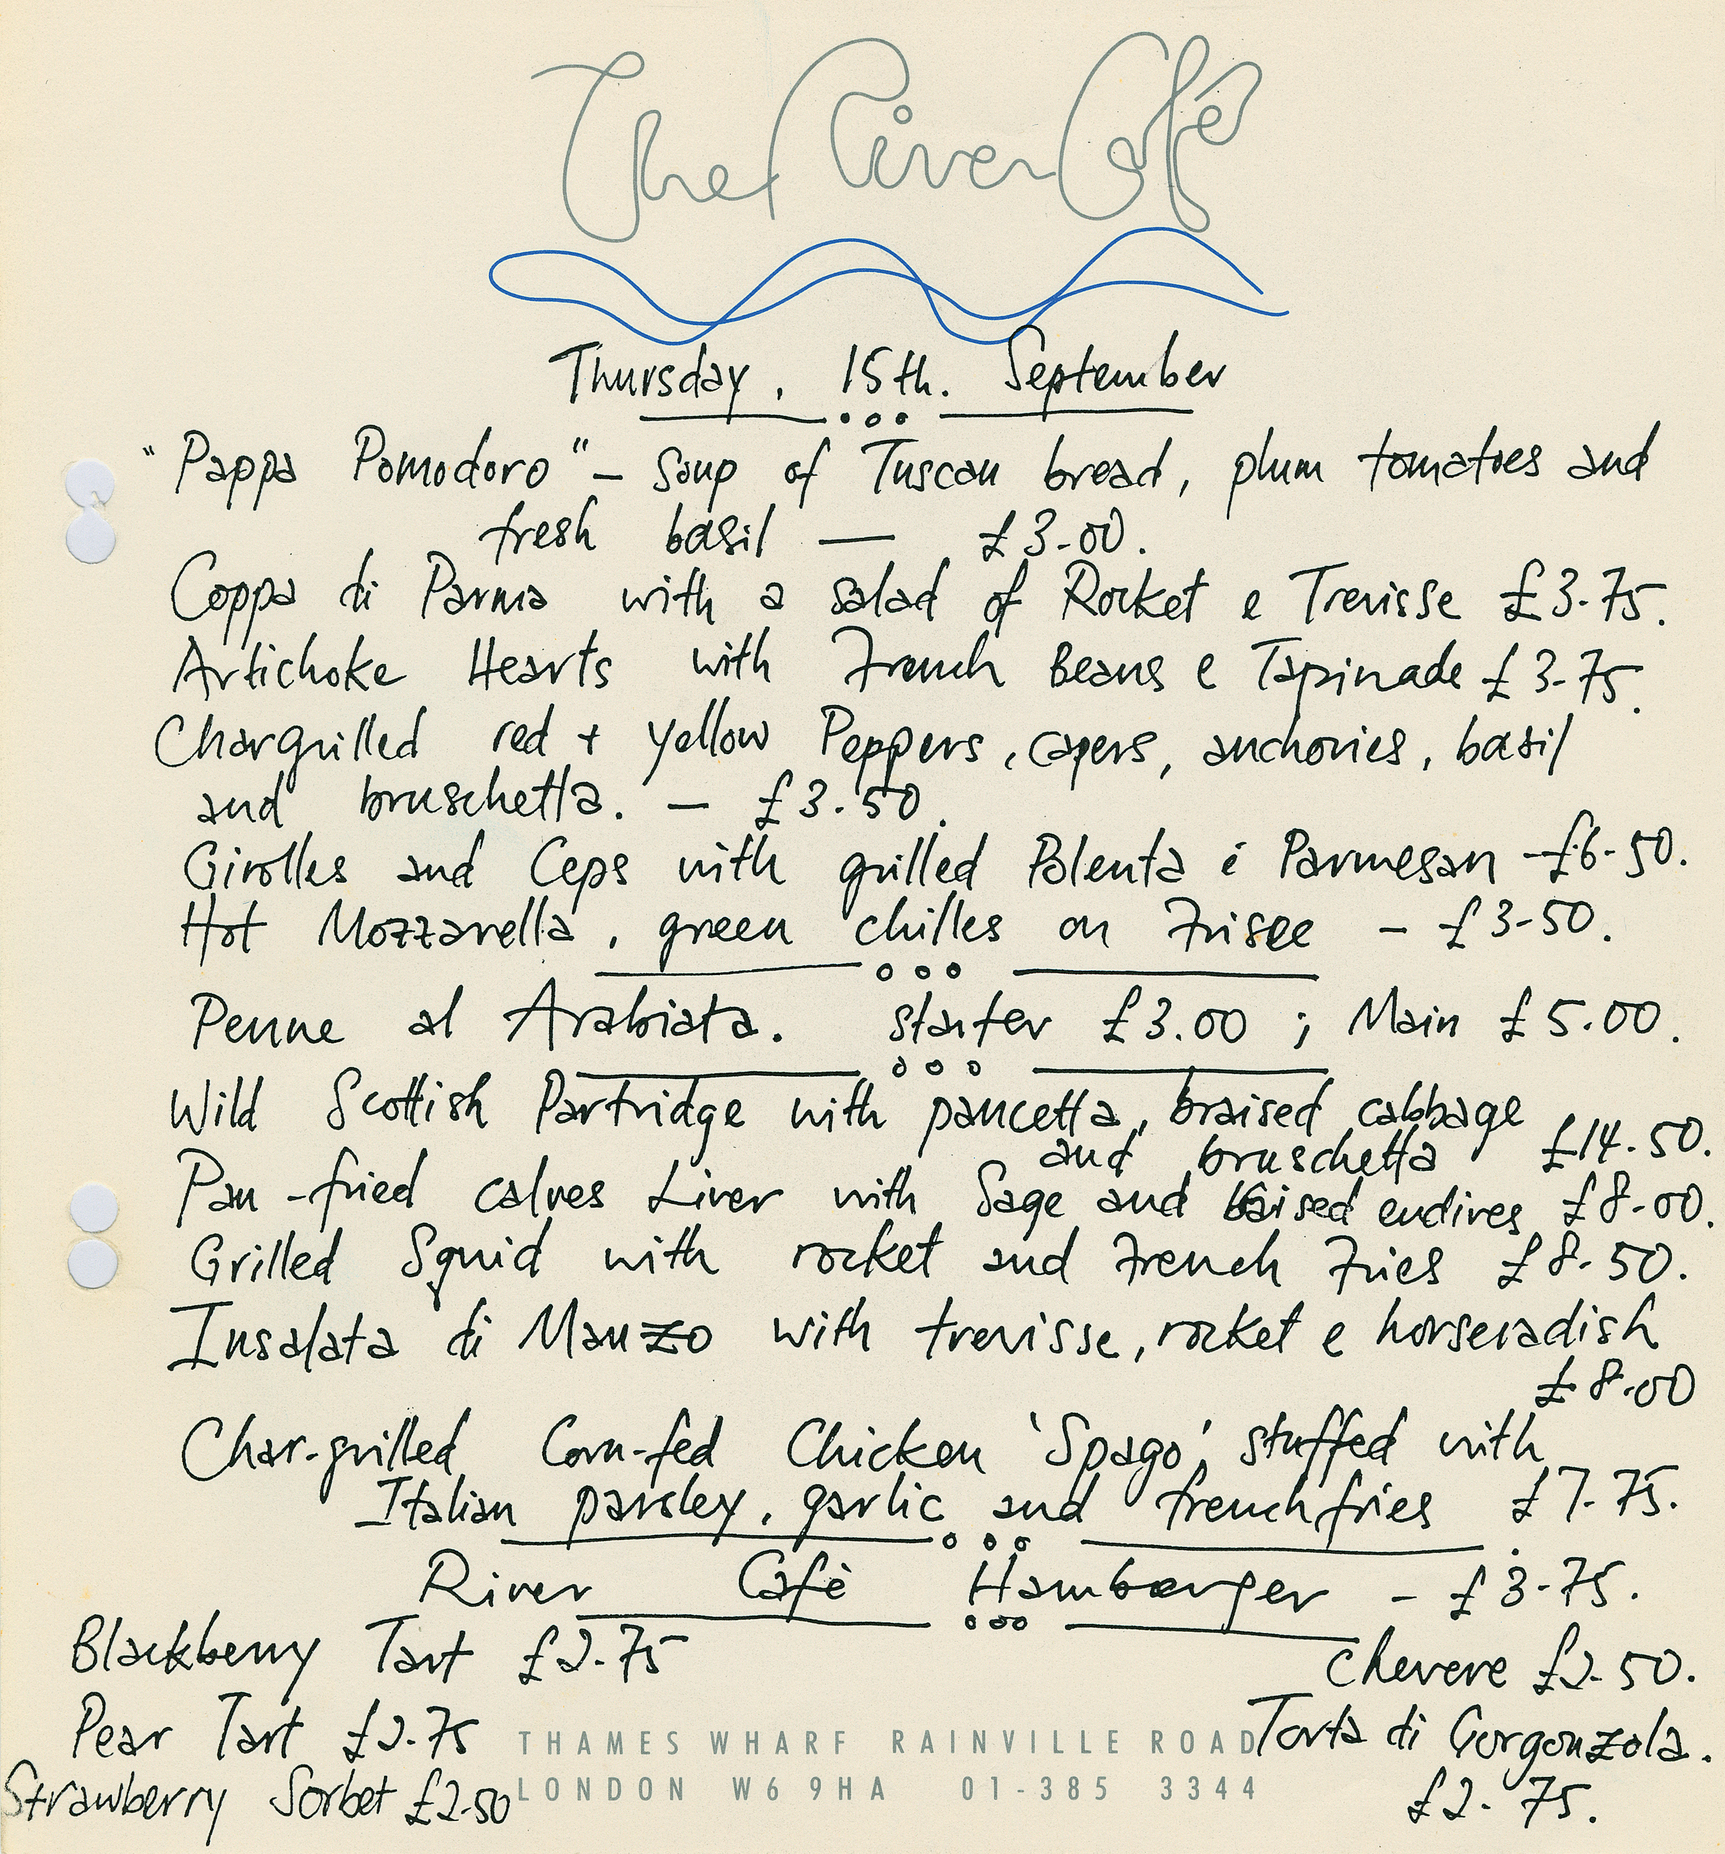 The River Café
Thursday, 15th. September
"Pappa Pomodoro" – Soup of Tuscan bread, plum tomatoes and
fresh basil — £3-00.
Coppa di Parma with a salad of Rocket e Trevisse £3-75.
Artichoke Hearts with French Beans e Tapinade £3-75.
Chargrilled red + yellow Peppers, capers, anchovies, basil
and bruschetta. – £3.50.
Girolles and Ceps with grilled Polenta é Parmesan – £6-50.
Hot Mozzarella, green chilles on Frisee – £3-50.
Penne al Arabiata. starter £3.00 ; Main £5.00.
Wild Scottish Partridge with pancetta, braised cabbage
and bruschetta £14.50.
Pan-fried calves Liver with Sage and braised endives £8-00.
Grilled Squid with rocket and French Fries £8-50.
Insalata di Manzo with trevisse, rocket e horseradish
£8.00
Char-grilled Corn-fed Chicken 'Spago' stuffed with
Italian parsley, garlic and french fries £7-75.
River Cafè Hamburger – £3-75.
Blackberry Tart £2-75
Pear Tart £2.75
Strawberry Sorbet £2-50
Chevere £2-50.
Torta di Gorgonzola.
£2-75.
THAMES WHARF RAINVILLE ROAD
LONDON W6 9HA 01-385 3344